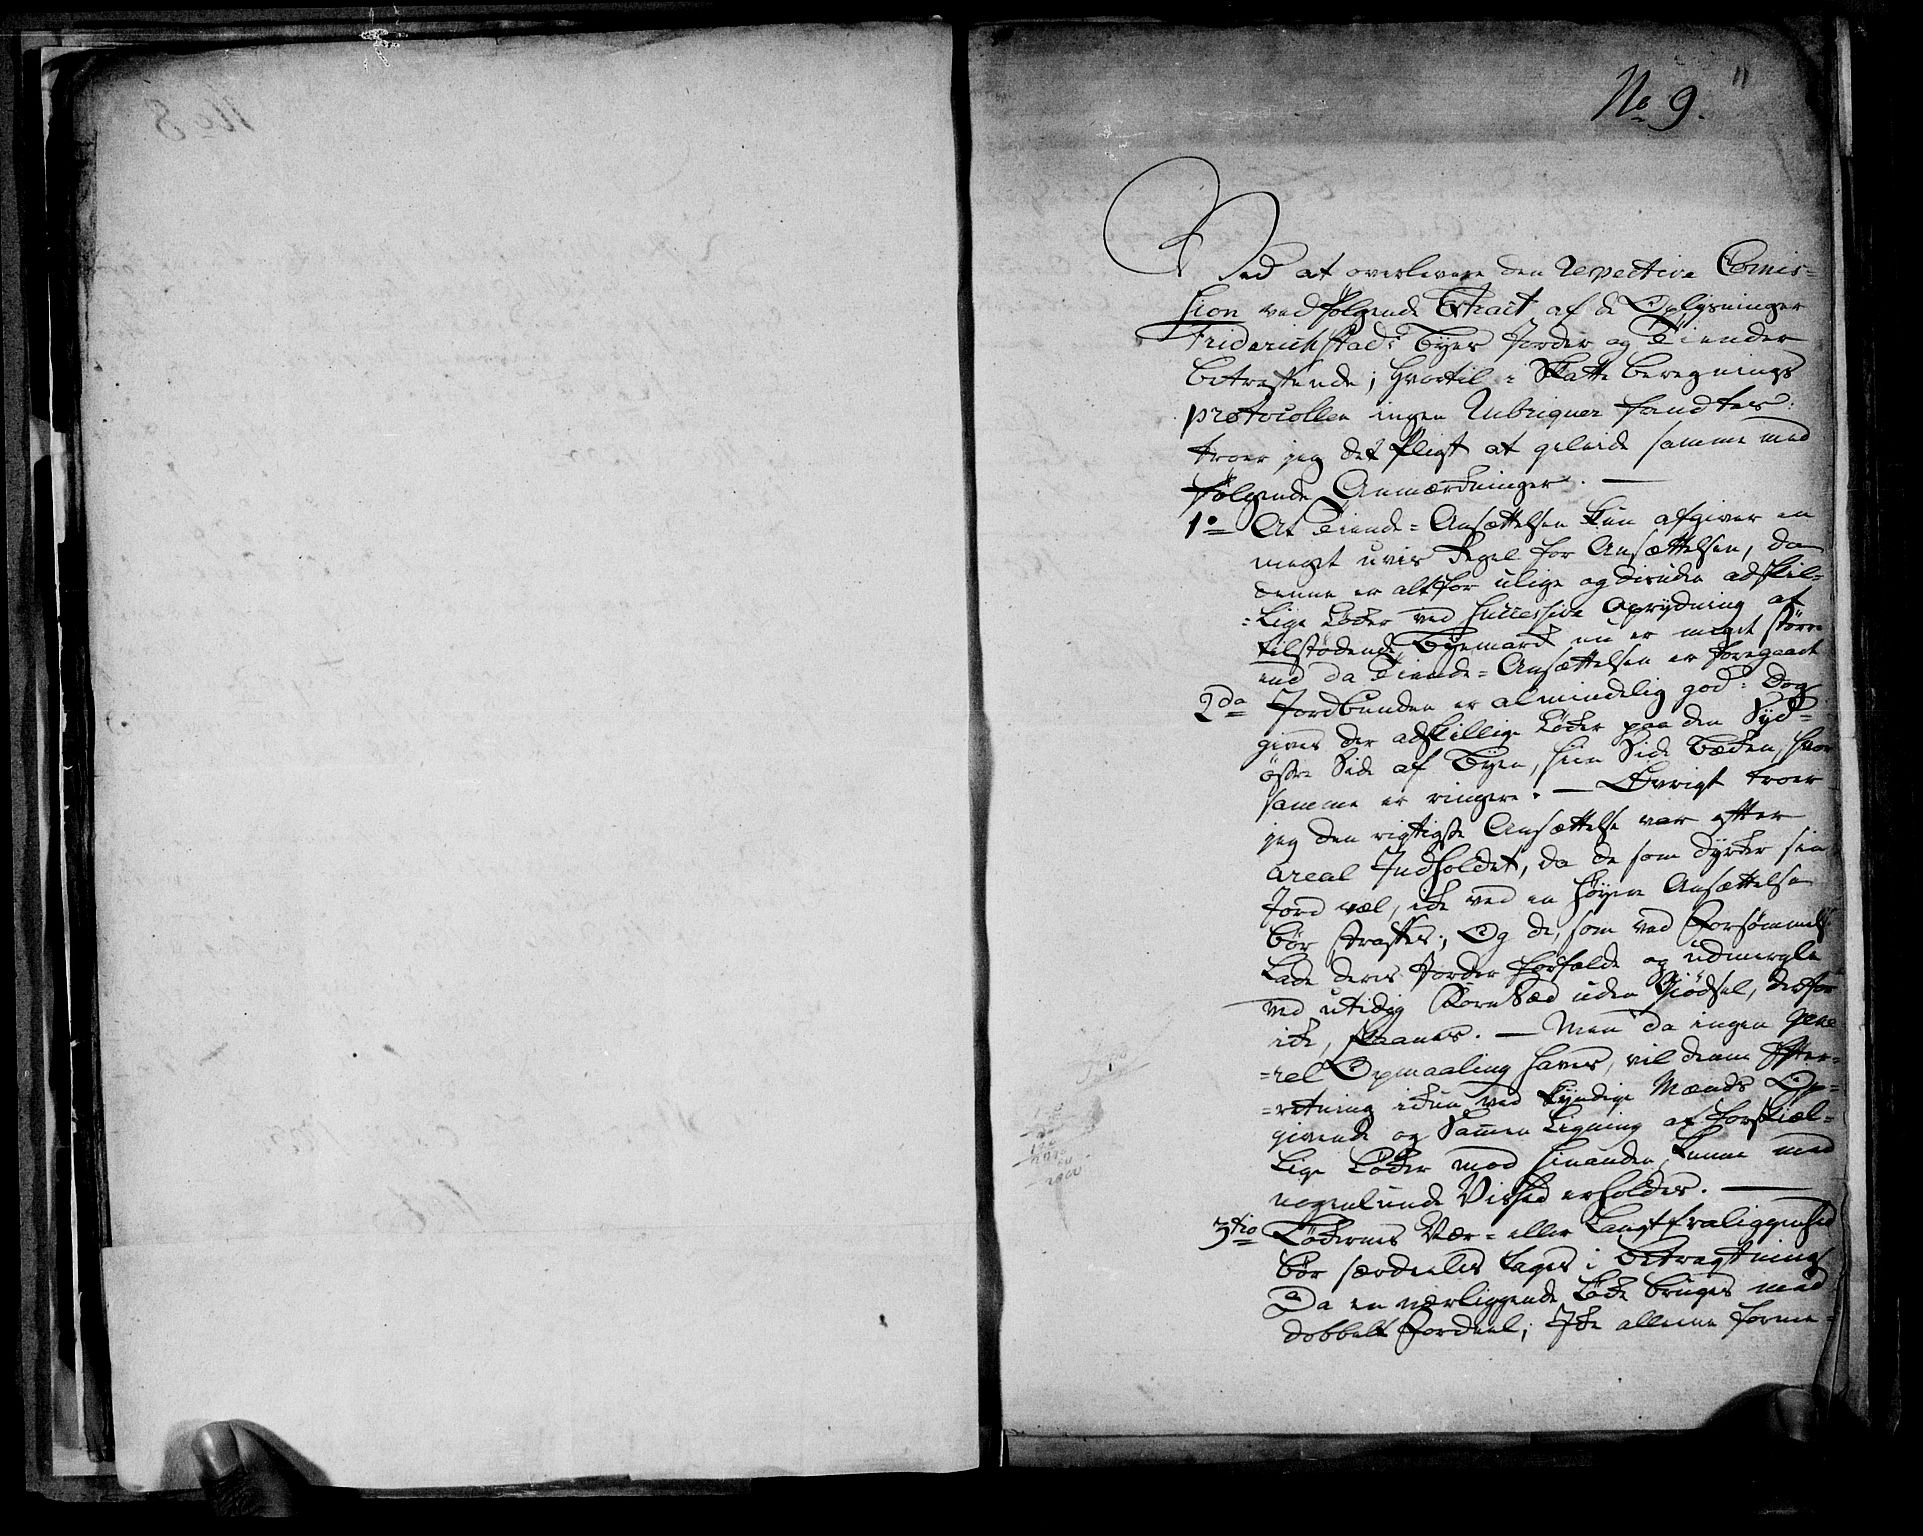 11
No 9.
Ved at overlevere den Respective Comis-
sion vedfølgende Extract af de Oplysninger
Friderichstads Byes Jorder og Tiender
betreffende; hvortil i Skatte beregnings
protocollen ingen Rubriquer fandtes:
troer jeg det Pligt at geleide samme med
følgende Anmærkninger. —
1o At Tiende-Ansættelsen kun afgiver en
meget uvis Regel for Ansættelsen, da
denne er altfor ulige og desuden adskil-
-lige Løkker ved successive Oprydning af
tilstødende Byemark nu er meget større
end da Tiende-Ansættelsen er foregaaet
2da Jordbunden er almindelig god: Dog
gives der adskillige Løkker paa den Syd-
østre Side af Byen, hiin Side Bækken, hvor
samme er ringere. — Øvrigt troer
jeg den rigtigste Ansættelse var efter
Areal Indholdet, da de som dyrker sin
Jord vel, ikke ved en høyere Ansættelse
bør straffes; Og de, som ved Forsømmelse
lade deres Jorder forfalde og udmergle
ved utidig Korn Sæd uden Giødsel, derfor
ikke, skaanes. — Men da ingen gene
-rel Opmaaling haves, vil denne Efter-
-retning ikkun ved kyndige Mænds Op-
givende og Sammen Ligning af forskiæl-
lige Løkker mod hinanden, kunne med
nogenlunde Vished erholdes. —
3tio Løkkernes Nær- eller Langtfraliggenhed
bør særdeeles tages i betragtning
Da en nærliggende Løkke bruges med
dobbelt Fordeel; Ikke alleene forme-